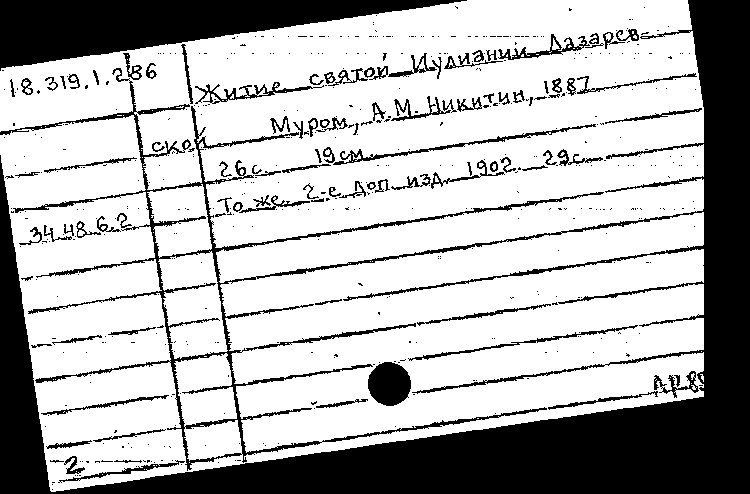 18.319.1.286
Житие святой Иулиании Лазарев-
ской Муром, А.М. Никитин, 1887
26с. 19см
34.48.6.2 То же. 2-е доп. изд. 1902. 29с.
2